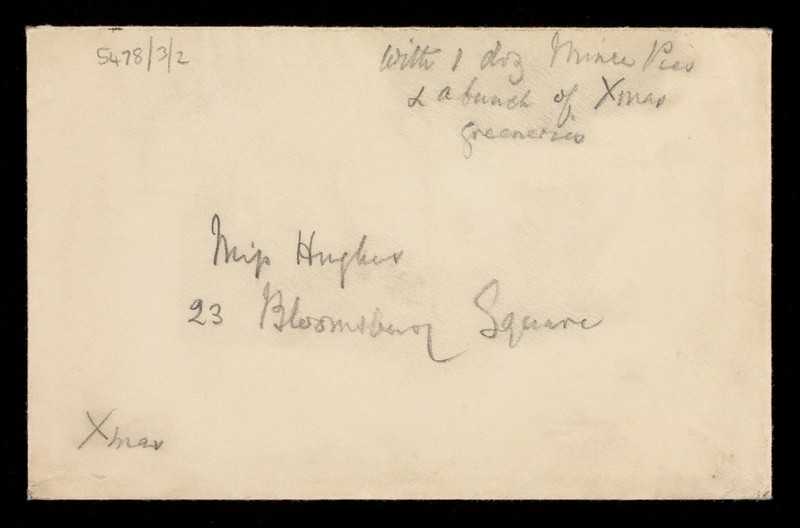 5478/3/2
With 1 doz Mince Pies
& a bunch of Xmas
greeneries
Miss Hughes
23 Bloomsbury Square
Xmas